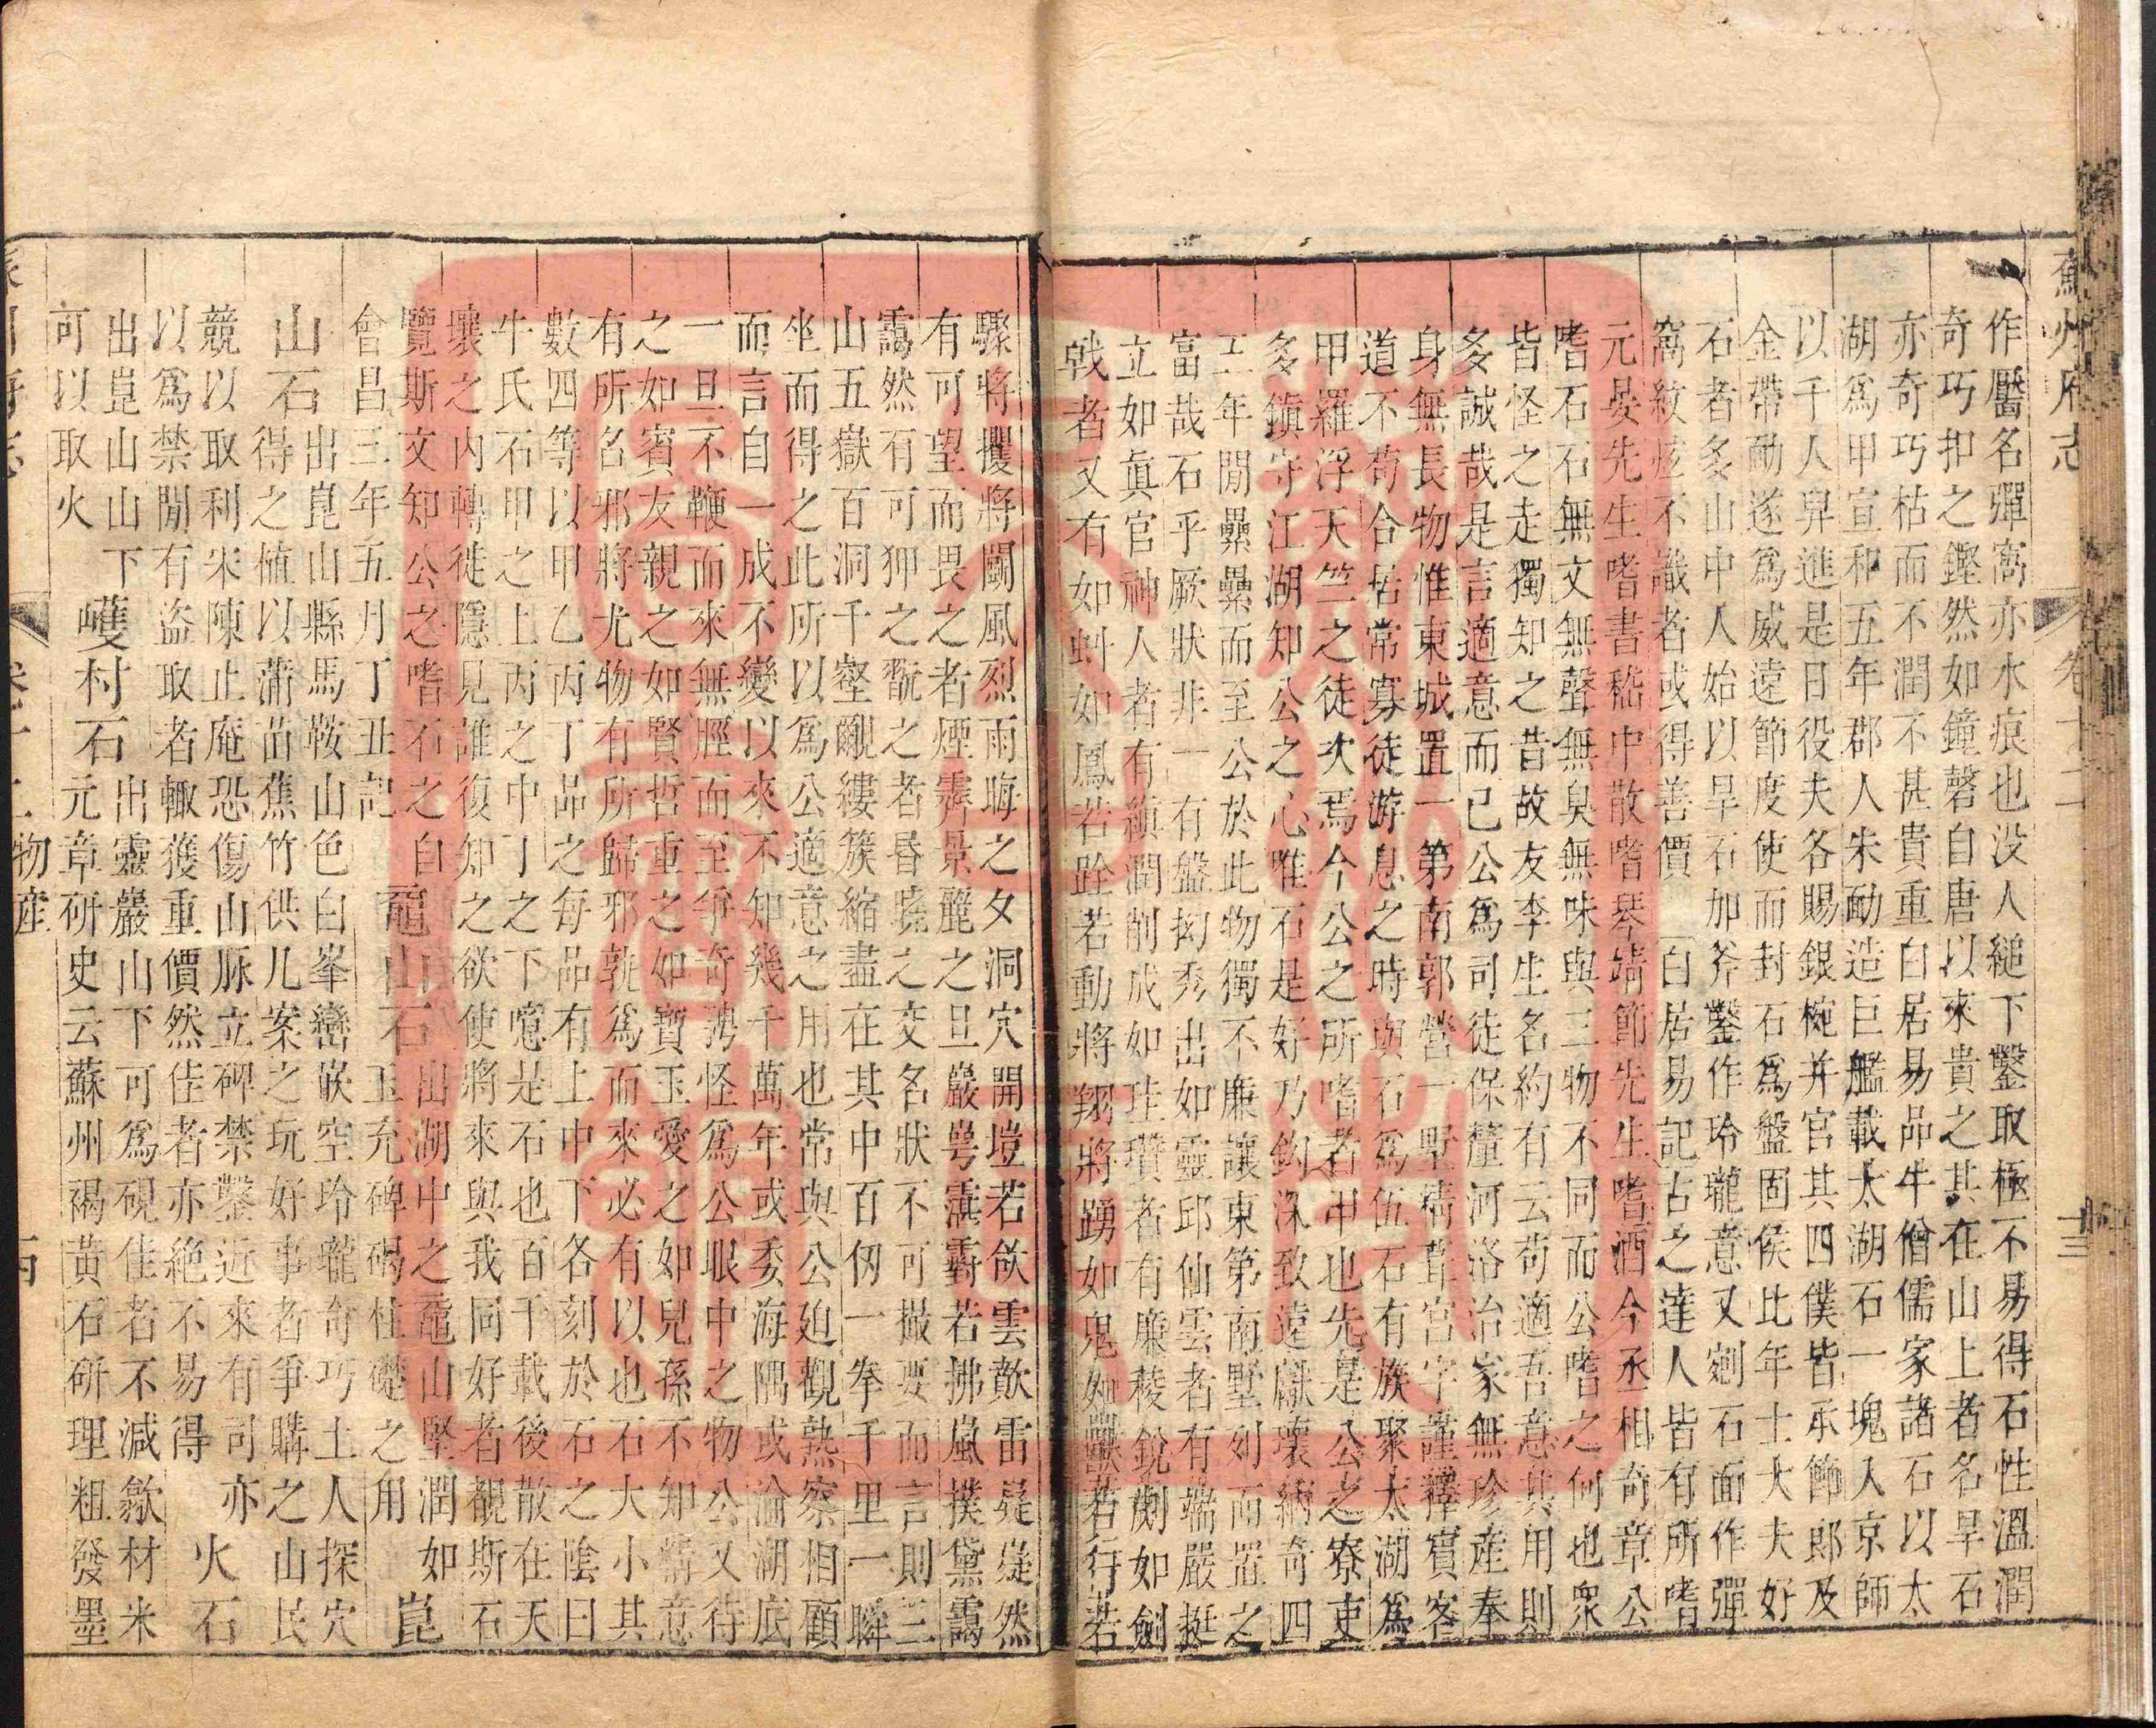 蘇州府志
卷二十二
十三
作靨名彈窩亦水痕也没人縋下鑿取極不易得石性溫潤
奇巧扣之鏗然如鐘磬自唐以來貴之其在山上者名旱石
亦奇巧枯而不潤不甚貴重白居易品牛僧儒家諸石以太
湖爲甲宣和五年郡人朱勔造巨艦載太湖石一塊入京師
以千人舁進是日役夫各賜銀椀并官其四僕皆承節郎及
金帶勔遂爲威遠節度使而封石爲盤固侯比年士大夫好
石者多山中人始以旱石加斧鑿作玲瓏意又剜石面作彈
窩紋痃不識者或得善價 白居易記古之達人皆有所嗜
元晏先生嗜書嵇中散嗜琴靖節先生嗜酒今丞相奇章公
嗜石石無文無聲無臭無味與三物不同而公嗜之何也衆
皆怪之走獨知之昔故友李生名約有云苟適吾意其用則
多誠哉是言適意而已公爲司徒保釐河洛治家無珍産奉
身無長物惟東城置一第南郭營一墅精葺宮宇謹擇賓客
道不苟合居常寡徒游息之時與石爲伍石有族聚太湖爲
甲羅浮天竺之徒次焉今公之所嗜者甲也先是公之寮吏
多鎮守江湖知公之心惟石是好乃鈎深致遠獻瓌納奇四
五年間纍纍而至公於此物獨不廉讓東第南墅列而置之
富哉石乎厥狀非一有盤拗秀出如靈邱仙雲者有端嚴挺
立如眞官神人者有縝潤削成如珪瓚者有廉稜銳劌如劍
戟者又有如虯如鳳若跧若動將翔將踴如鬼如獸若行若
驟將攫將鬬風烈雨晦之夕洞穴開塏若欱雲歕雷嶷嶷然
有可望而畏之者煙霽景麗之旦巖崿霮䨴若拂嵐撲黛靄
靄然有可狎之翫之者昏曉之交名狀不可撮要而言則三
山五嶽百洞千壑覼縷簇縮盡在其中百仞一拳千里一瞬
坐而得之此所以爲公適意之用也常與公迫觀熟察相顧
而言自一成不變以來不知幾千萬年或委海隅或淪湖底
一旦不鞭而來無脛而至爭奇騁怪爲公眼中之物公又待
之如賓友親之如賢哲重之如寶玉愛之如兒孫不知精意
有所召邪將尤物有所歸邪孰爲而來必有以也石大小其
數四等以甲乙丙丁品之每品有上中下各刻於石之陰曰
牛氏石甲之上丙之中丁之下噫是石也百千載後散在天
壤之內轉徙隱見誰復知之欲使將來與我同好者覩斯石
覽斯文知公之嗜石之自
會昌三年五月丁丑記 黿山石 出湖中之黿山堅潤如玉充碑碣柱礎之用 崑
山石 出崑山縣馬鞍山色白峯巒嵌空玲瓏奇巧土人探穴
得之植以蒲苗蕉竹供几案之玩好事者爭購之山民
競以取利宋陳止庵恐傷山脉立碑禁鑿近來有司亦
以爲禁間有盜取者輒獲重價然佳者亦絶不易得 火石
出崑山山下可以取火 𡾟村石 出靈巖山下可爲硯佳者不減歙材米
元章硏史云蘇州褐黃石硏理粗發墨
物産